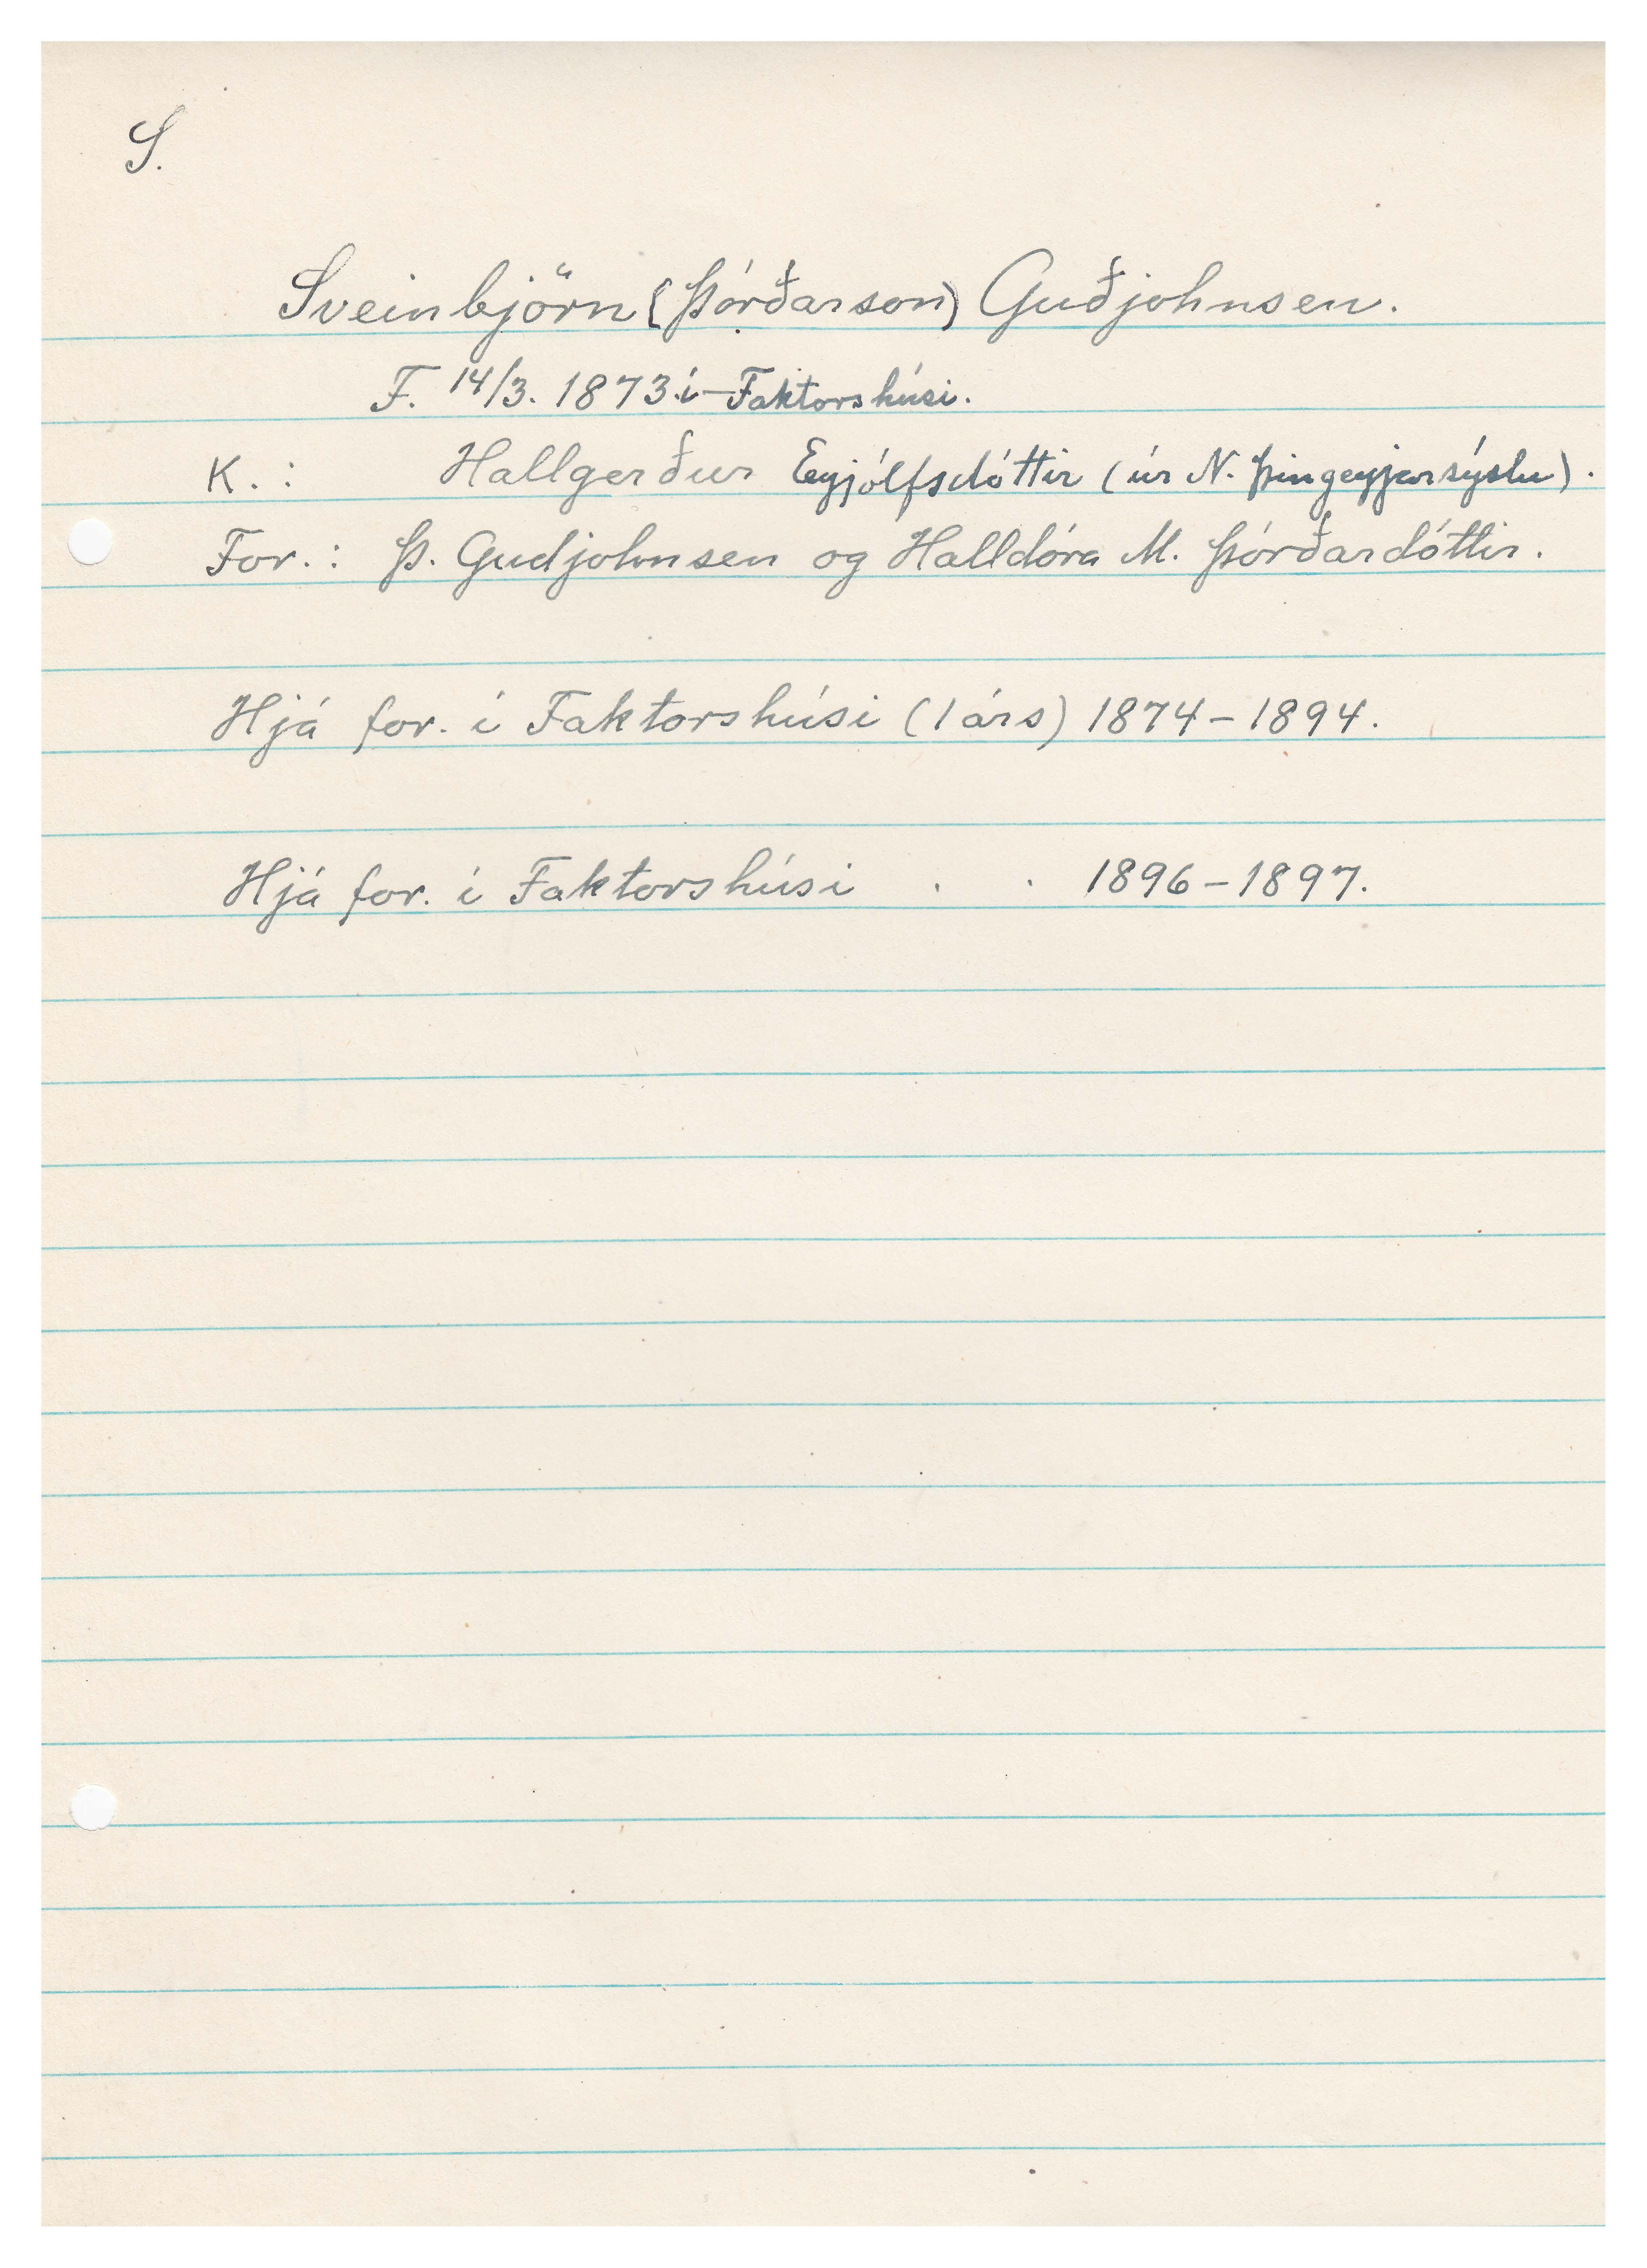 S.
Sveinbjörn (Þórðarson) Guðjohnsen.
F. 14/3. 1873 í Faktorshúsi.
K. : Hallgerður Eyjólfsdóttir (úr N. Þingeyjarsýslu).
For. : Þ. Gudjohnsen og Halldóra M. Þórðardóttir.
Hjá for. í Faktorshúsi (1 árs) 1874 - 1894.
Hjá for. í Faktorshúsi . . 1896 - 1897.